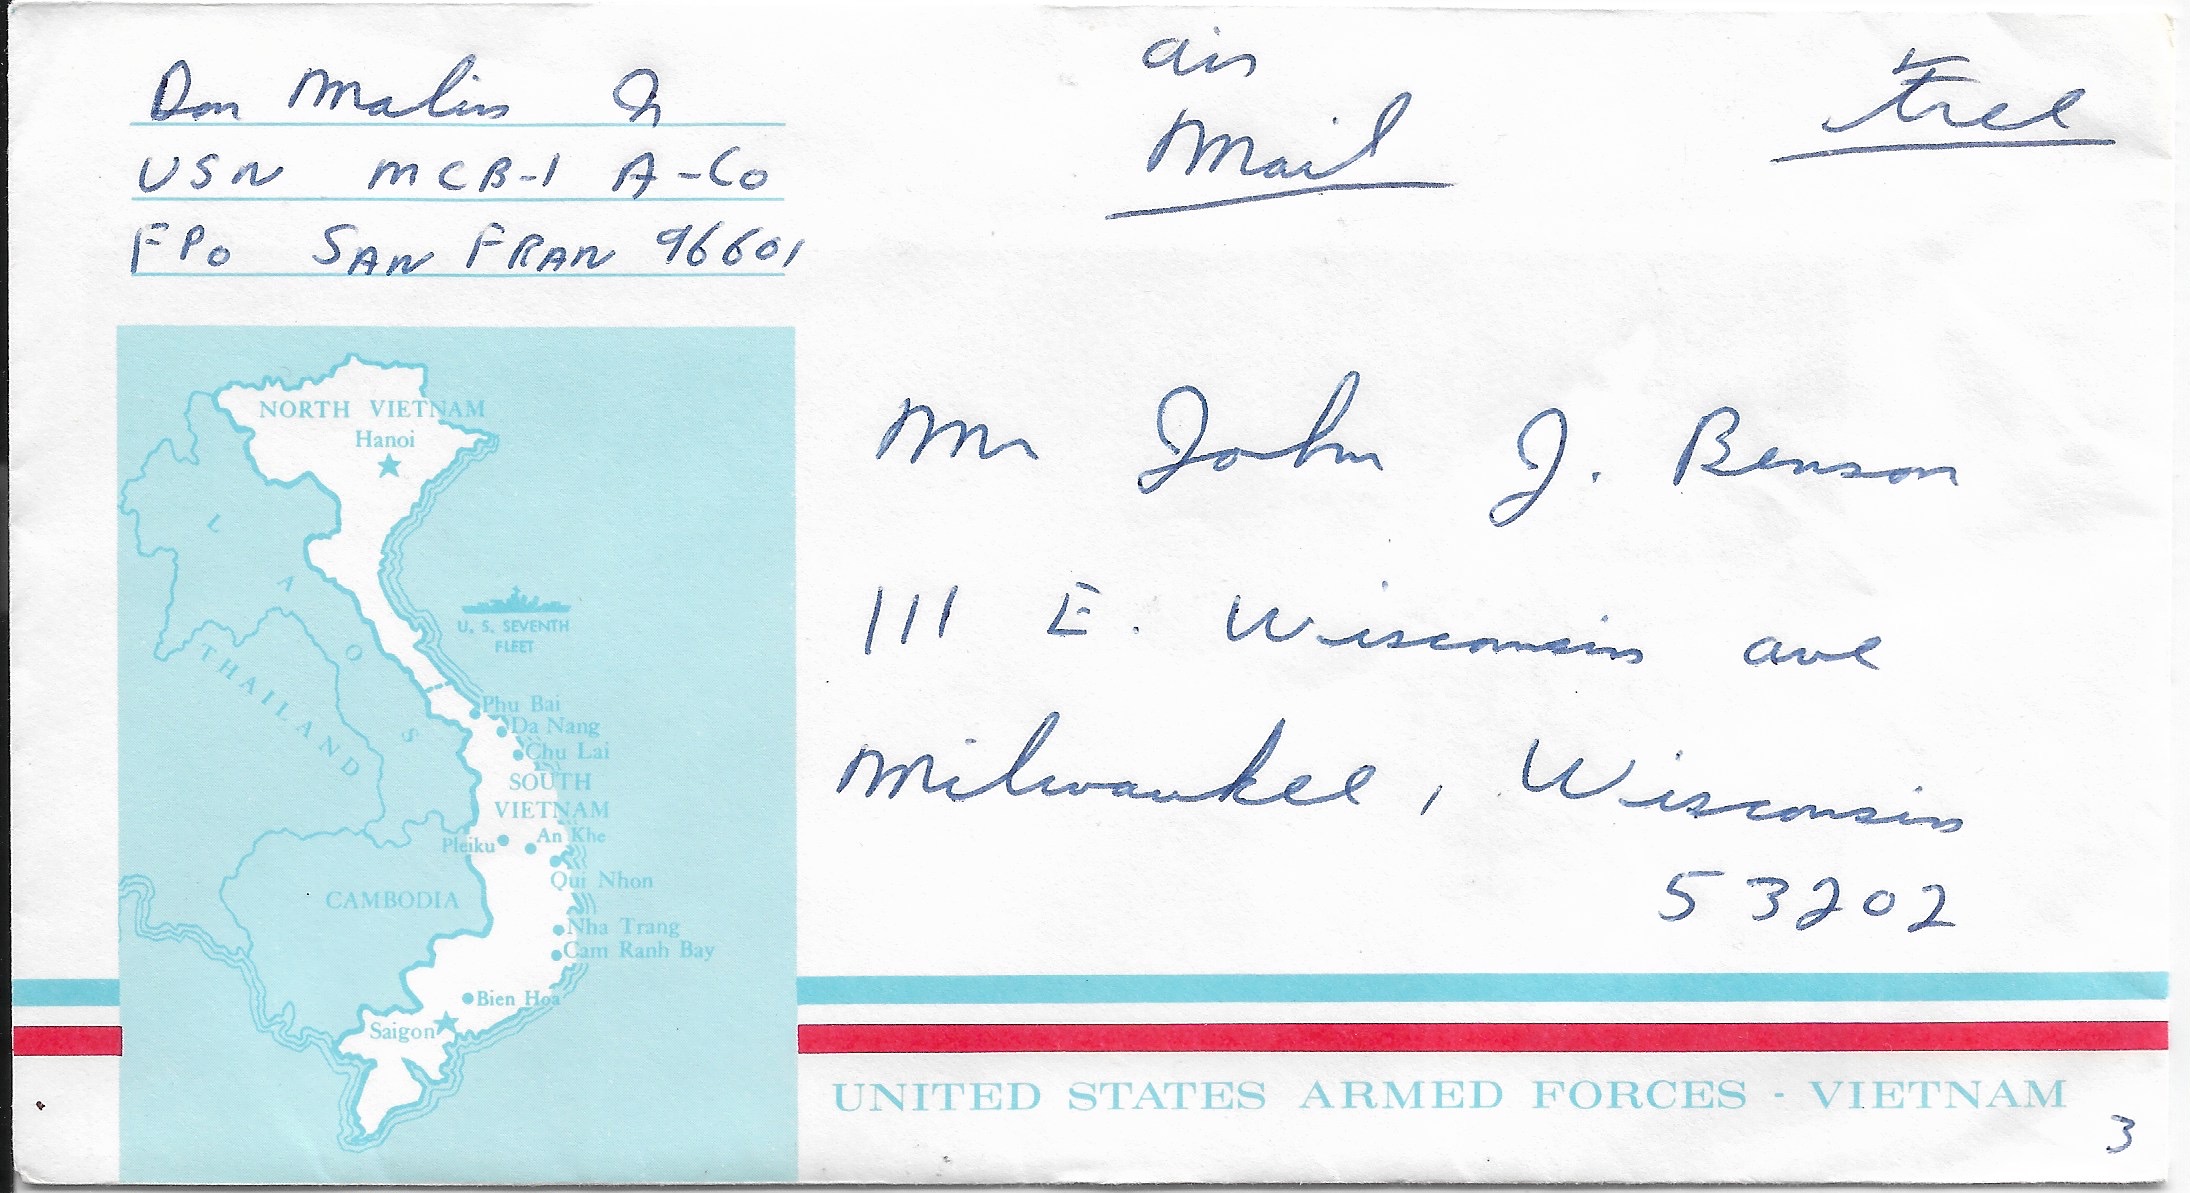 Don Malin Jr
USN MCB-1 A-Co
FPO SAN FRAN 96601
air
Mail
Free
Mr John J. Benson
111 E. Wisconsin ave
Milwaukee, Wisconsin
53202
NORTH VIETNAM
Hanoi
LAOS
THAILAND
U. S. SEVENTH
FLEET
Phu Bai
Da Nang
Chu Lai
SOUTH
VIETNAM
An Khe
Pleiku
Qui Nhon
CAMBODIA
Nha Trang
Cam Ranh Bay
Bien Hoa
Saigon
UNITED STATES ARMED FORCES - VIETNAM
3